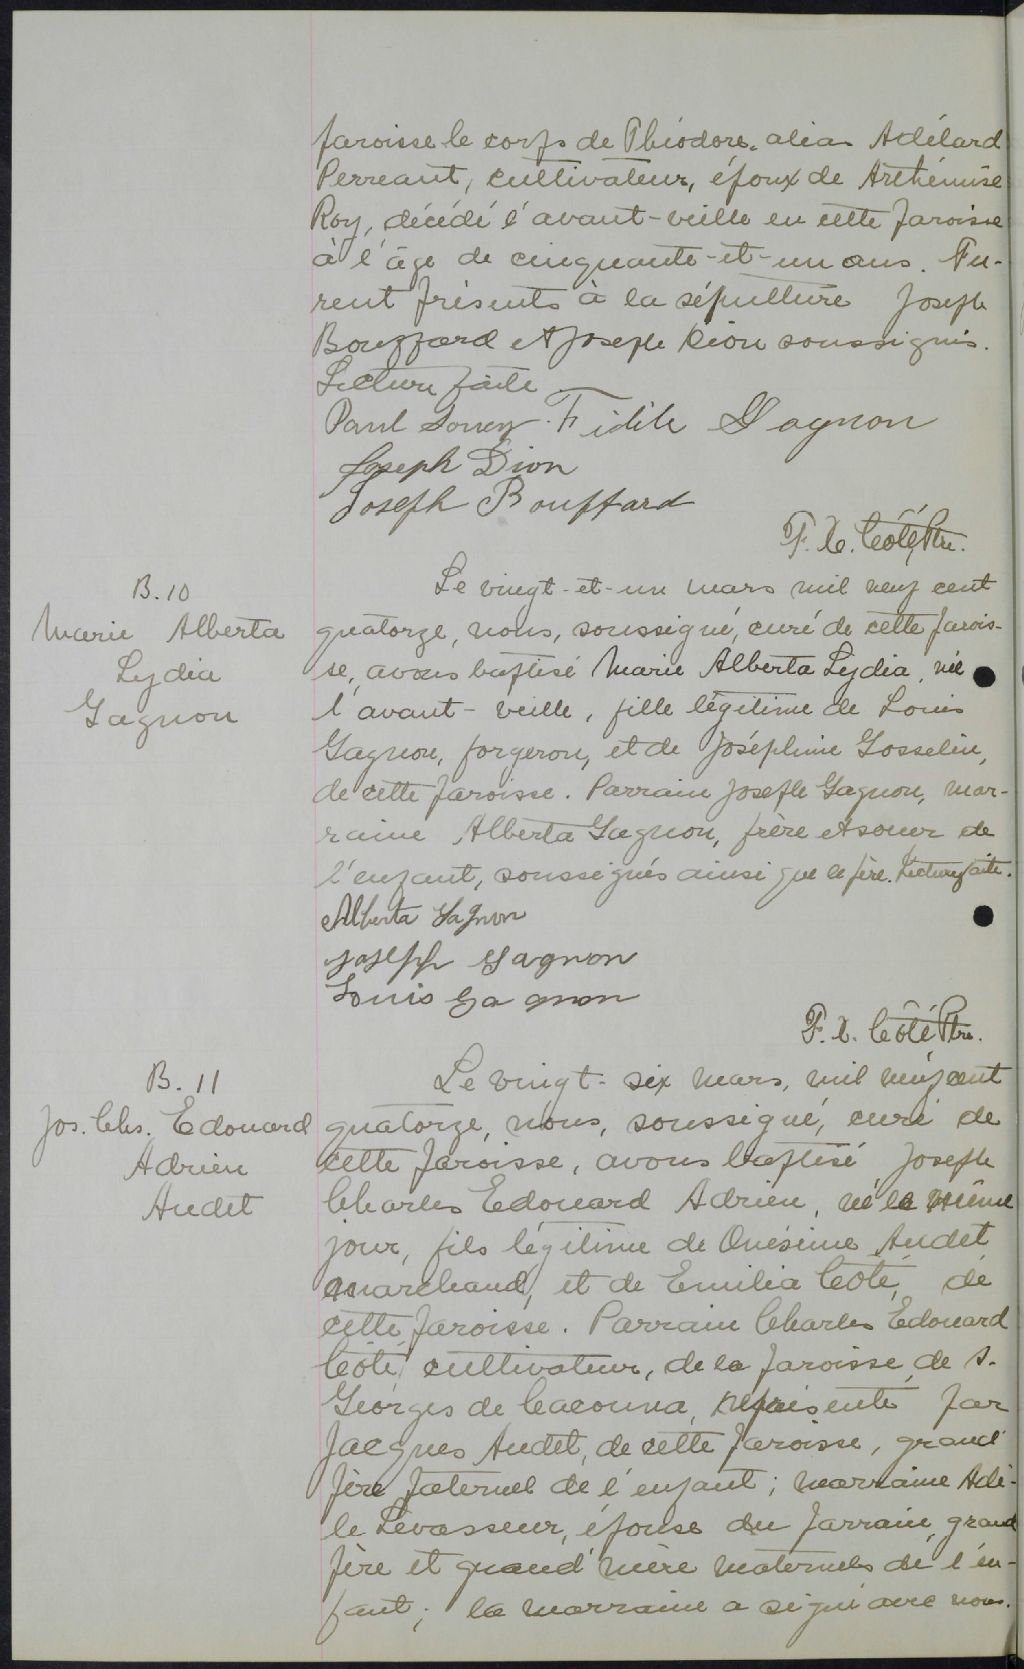 paroisse le corps de Théodore alias Adélard
Perreault, cultivateur, époux de Arthémise
Roy, décédé l'avant-veille en cette paroisse
à l'âge de cinquante-et-un ans. Fu-
rent présents à la sépulture Joseph
Bouffard et Joseph Dion soussignés.
Lecture faite
Paul Fidèle Gagnon
Joseph Dion
Joseph Bouffard
F. X. Côté, Ptre.
B. 10
Marie Alberta
Lydia
Gagnon
Le vingt-et-un mars mil neuf cent
quatorze, nous, soussigné, curé de cette parois-
se, avons baptisé Marie Alberta Lydia, née
l'avant-veille, fille légitime de Louis
Gagnon, forgeron, et de Joséphine Gosselin,
de cette paroisse. Parrain Joseph Gagnon, mar-
raine Alberta Gagnon, frère et soeur de
l'enfant, soussignés ainsi que le père. Lecture faite.
Alberta Gagnon
Joseph Gagnon
Louis Gagnon
F. X. Côté Ptre.
B. 11
Jos. Chs. Edouard
Adrien
Audet
Le vingt-six mars, mil neuf cent
quatorze, nous, soussigné, curé de
cette paroisse, avons baptisé Joseph
Charles Edouard Adrien, né le même
jour, fils légitime de Onésime Audet
marchand, et de Emilia Côté, de
cette paroisse. Parrain Charles Edouard
Côté, cultivateur, de la paroisse de S.
Georges de Cacouna, représenté par
Jacques Audet, de cette paroisse, grand
père paternel de l'enfant; marraine Adè-
le Levasseur, épouse du parrain, grand
père et grand'mère maternels de l'en-
fant; la marraine a signé avec nous.